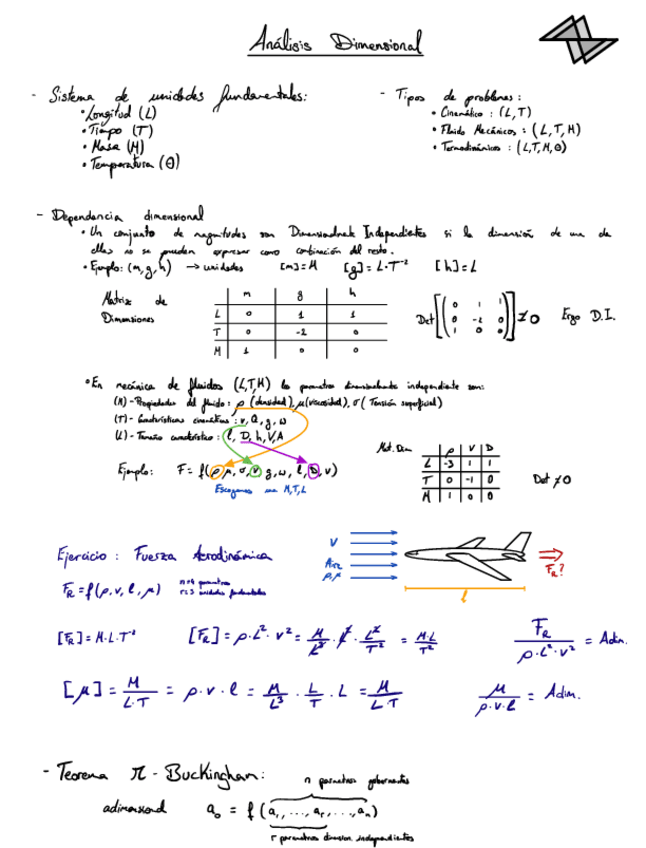 Análisis Dimensional
- Sistema de unidades fundamentales:
• Longitud (L)
• Tiempo (T)
• Masa (M)
• Temperatura (Θ)
- Tipos de problemas:
• Cinemático: (L,T)
• Fluido Mecánicos: (L,T,M)
• Termodinámicos: (L,T,M,Θ)
- Dependencia dimensional
• Un conjunto de magnitudes son Dimensionalmente Independientes si la dimensión de una de
ellas no se pueden expresar como combinación del resto.
• Ejemplo: (m,g,h) → unidades [m]=M [g]=L·T⁻² [h]=L
Matriz de
Dimensiones
m g h
L 0 1 1
T 0 -2 0
M 1 0 0
Det[(0 1 1
0 -2 0
1 0 0)]≠0 Ergo D.I.
• En mecánica de fluidos (L,T,M) los parametros dimensionalmente independiente son:
(M)-Propiedades del fluido: ρ (densidad), μ(viscosidad), σ (Tensión superficial)
(T)-Características cinemáticas: v, Q, g, ω
(L)-Tamaño característico: l, D, h, V, A
Ejemplo: F = f(ρ, μ, σ, v, g, ω, l, D, v)
Escogemos una M,T,L
Mat. Dim
ρ V D
L -3 1 1
T 0 -1 0
M 1 0 0
Det ≠0
Ejercicio: Fuerza Aerodinámica
F_R = f(ρ, v, l, μ)
n=4 parametros
r=3 unidades fundamentales
V
Aire
ρ,μ
F_R?
l
[F_R]=M·L·T⁻²
[F_R]=ρ·L²·v²= M/L³ · L² · L²/T² = M·L/T²
F_R/(ρ·L²·v²) = Adim.
[μ]= M/(L·T) = ρ·v·l = M/L³ · L/T · L = M/(L·T)
μ/(ρ·v·l) = Adim.
- Teorema π-Buckingham:
n parametros gobernantes
adimensional a₀ = f(a₁, ..., aᵣ, ..., aₙ)
r parametros dimension. independientes